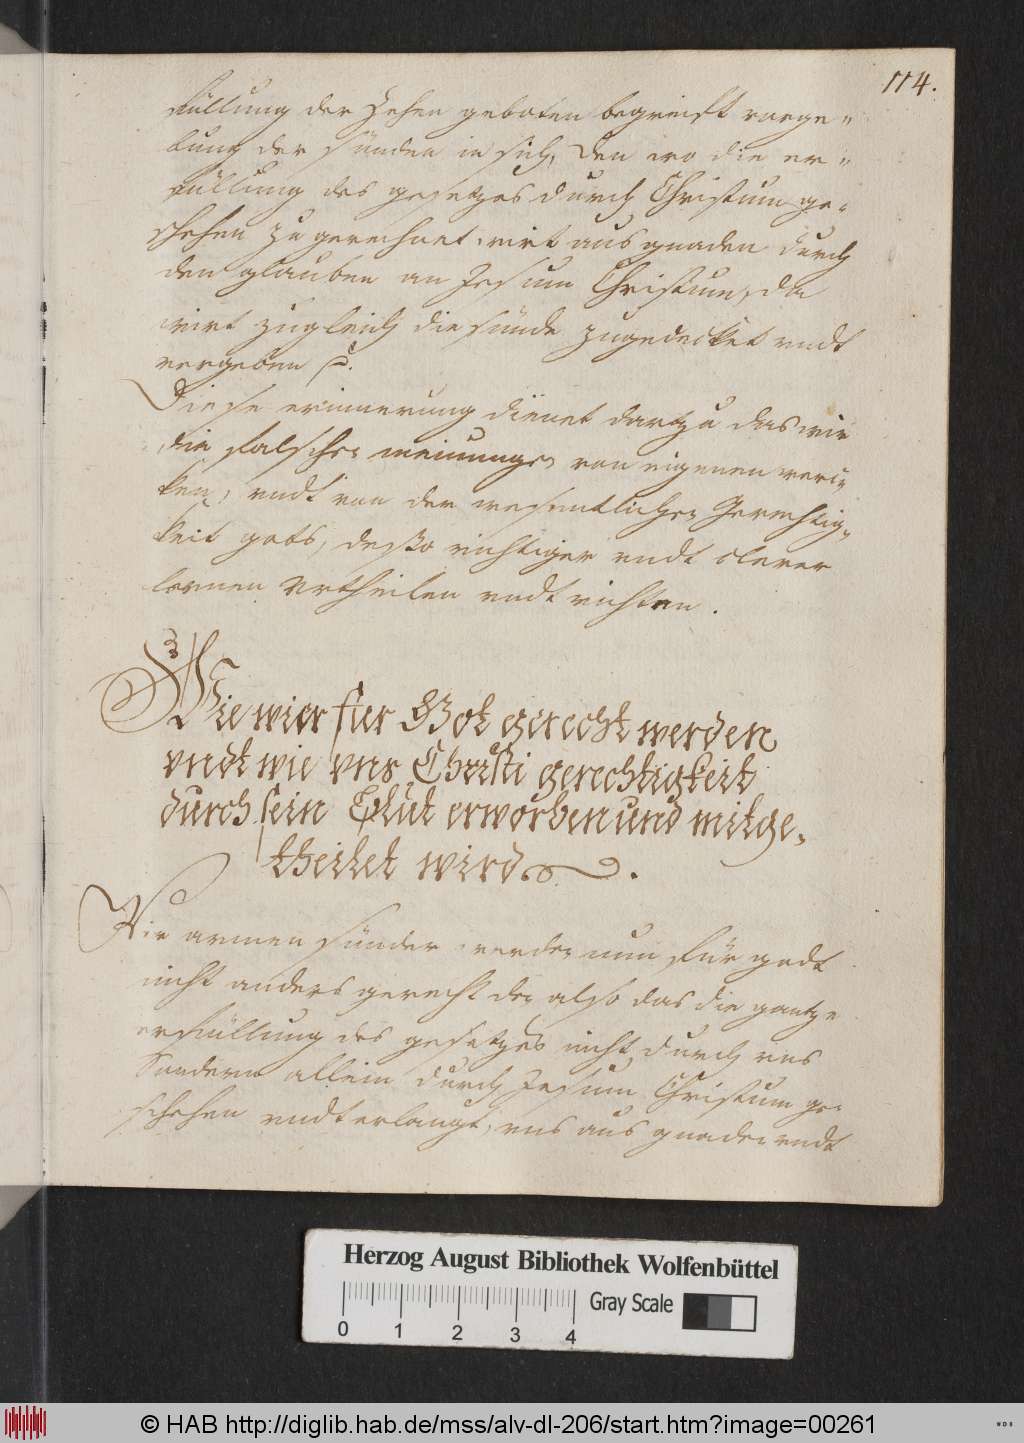 114.
füllung der Zehen geboten begreifft verge-
bung der sünden in sich, Den wo die er-
füllung des gesetzes durch Christum ge-
schehen zu gerechnet wirt aus gnaden durch
den glauben an Jesum Christum, da
wirt zugleich die sünde zugedecket undt
vergeben
Diese erinnerung dienet dartzu das wir
die falschen meinunge von eigenen werc-
ken, undt von der wesentlichen Gerechtig-
keit gots, desto richtiger undt clerer
lernen Urtheilen undt richten.
Wie wier fier Got gerecht werden
vndt wie vns Christi gerechtigkeit
durch sein Blůt erworben und mitge-
theilet wird.
Wir armen sünder werden nun für godt
nicht anders gerecht den also das die gantze
erfüllung des gesetzes nicht durch uns
Sondern allein durch Jesum Christum ge-
schehen undt erlangt, uns aus gnaden undt
Herzog August Bibliothek Wolfenbüttel
Gray Scale
0 1 2 3 4
© HAB http://diglib.hab.de/mss/alv-dl-206/start.htm?image=00261